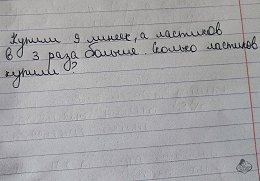 Купили 9 линеек, а ластиков
в 3 раза больше. Сколько ластиков
купили?